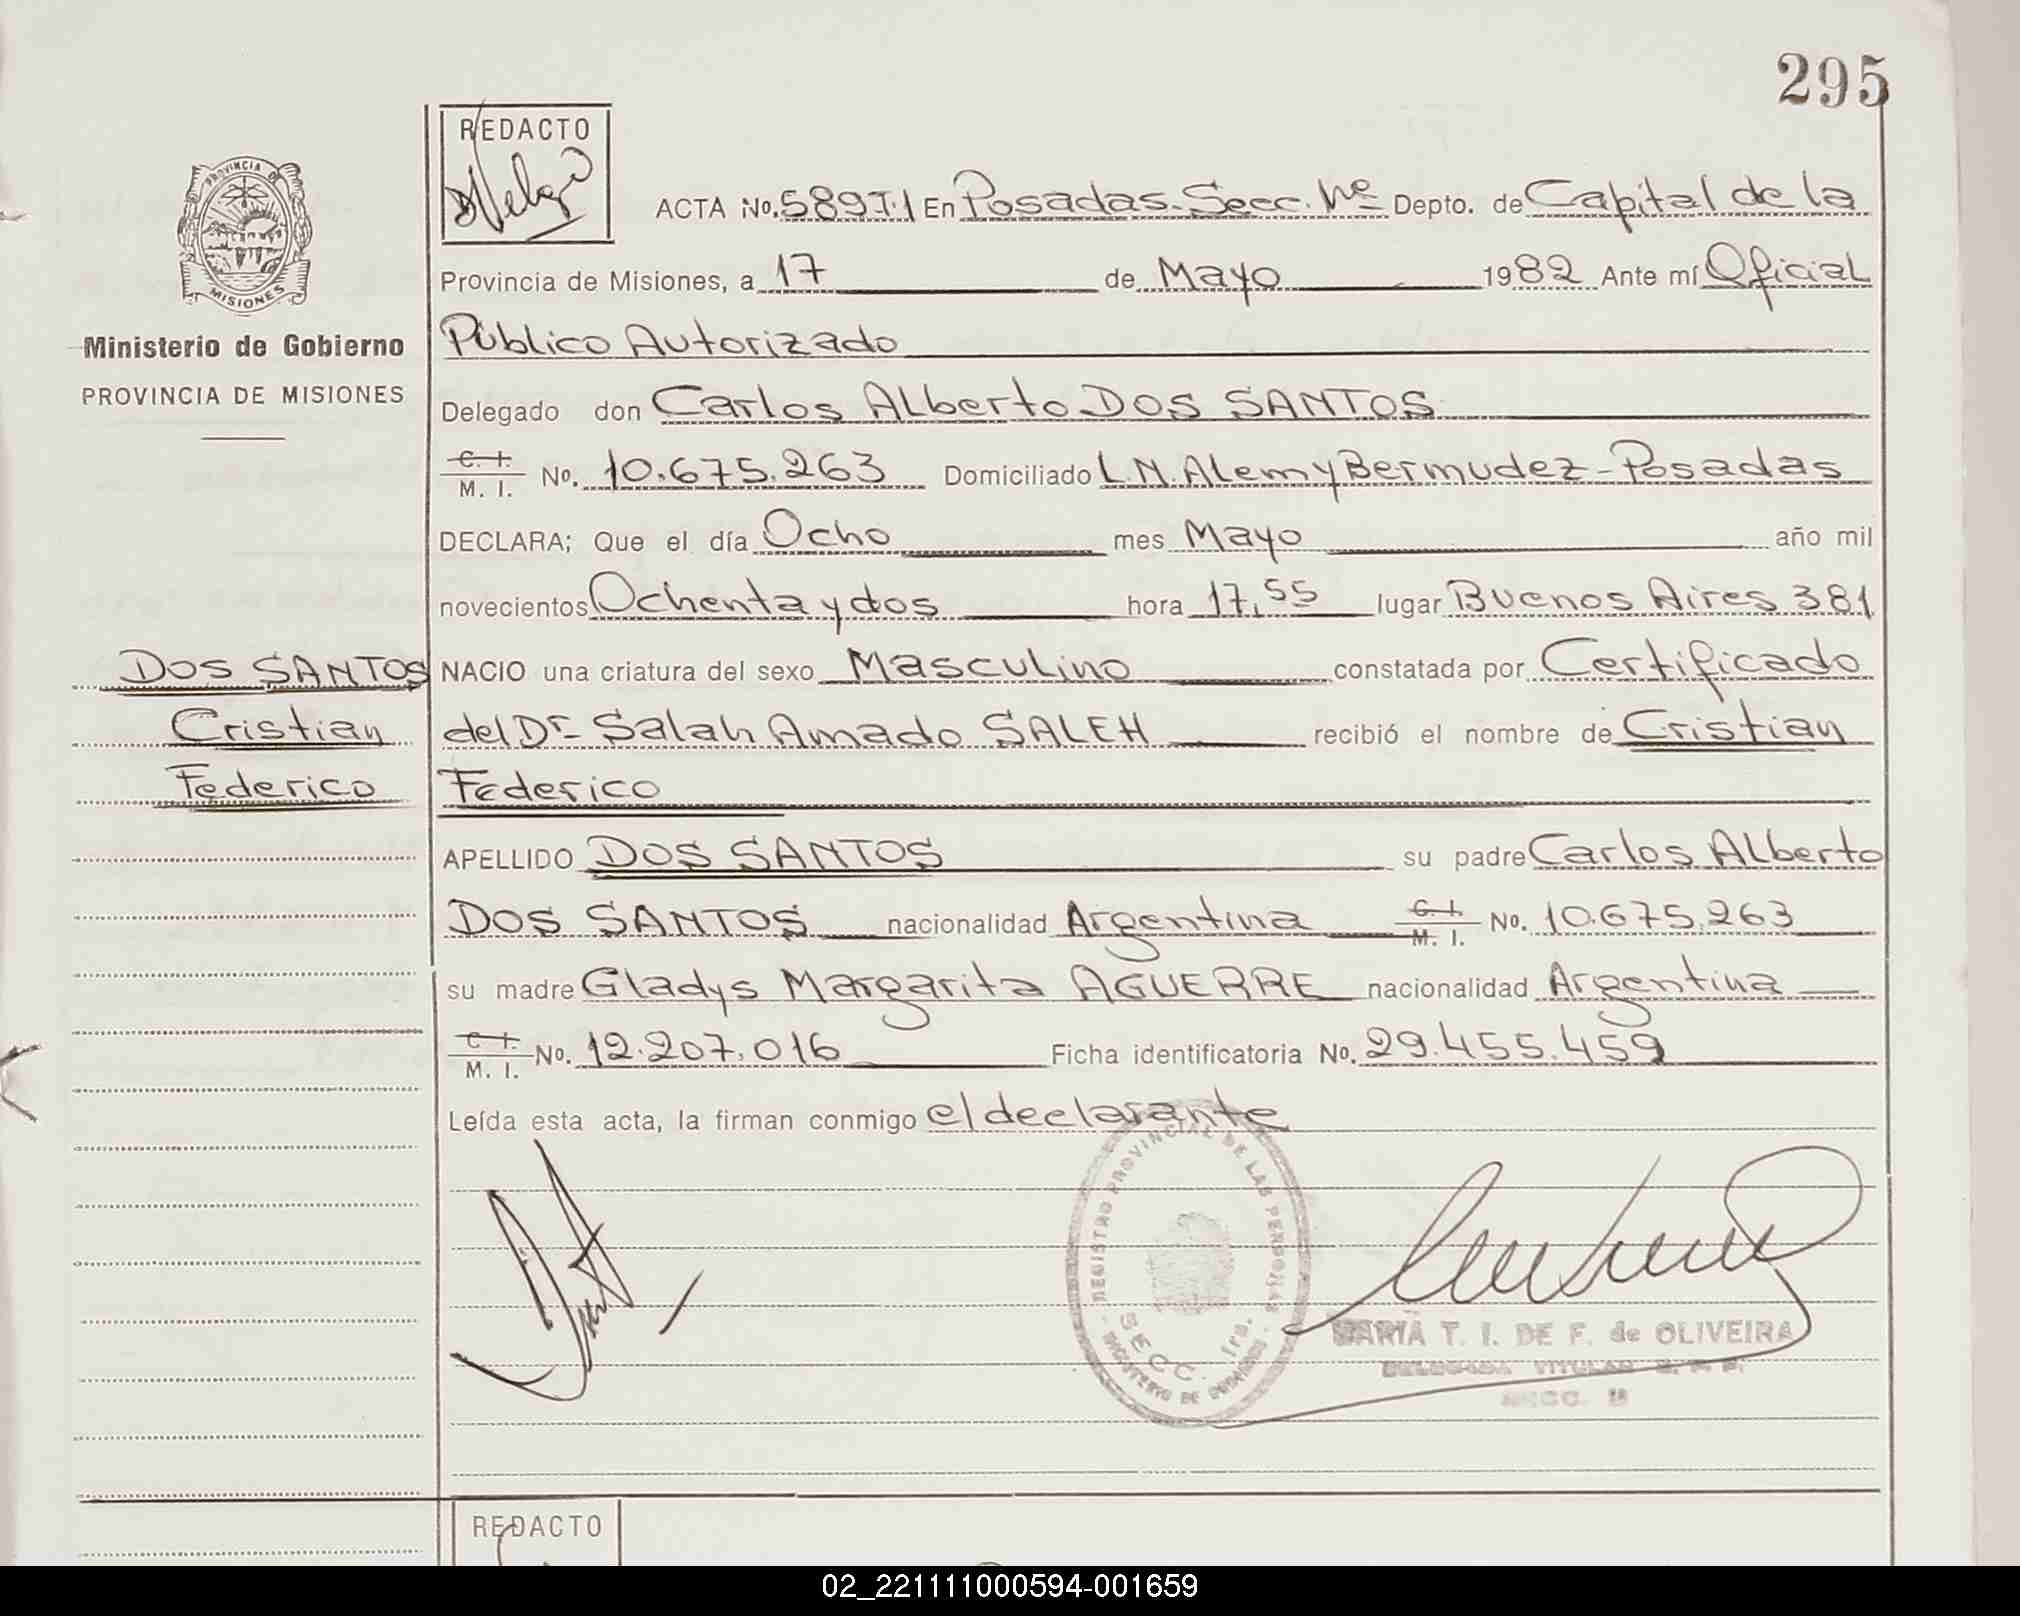 295
REDACTO
PROVINCIA DE
MISIONES
Ministerio de Gobierno
PROVINCIA DE MISIONES
ACTA No. 589T.1 En Posadas. Secc. Nº Depto. de Capital de la
Provincia de Misiones, a 17 de Mayo 1982 Ante mí Oficial
Público Autorizado
Delegado don Carlos Alberto DOS SANTOS
C. I. / M. I. No. 10.675.263 Domiciliado L.N. Alem y Bermudez - Posadas
DECLARA; Que el día Ocho mes Mayo año mil
novecientos Ochenta y dos hora 17,55 lugar Buenos Aires 381
DOS SANTOS
Cristian
Federico
NACIO una criatura del sexo Masculino constatada por Certificado
del Dr Salah Amado SALEH recibió el nombre de Cristian
Federico
APELLIDO DOS SANTOS su padre Carlos Alberto
DOS SANTOS nacionalidad Argentina C. I. / M. I. No. 10.675.263
su madre Gladys Margarita AGUERRE nacionalidad Argentina
C. I. / M. I. No. 12.207.016 Ficha identificatoria No. 29.455.459
Leída esta acta, la firman conmigo el declarante
REGISTRO PROVINCIAL DE LAS PERSONAS
SECC. 1ra.
MINISTERIO DE GOBIERNO
MARIA T. I. DE F. de OLIVEIRA
DELEGADA TITULAR
SECC.
REDACTO
02_221111000594-001659